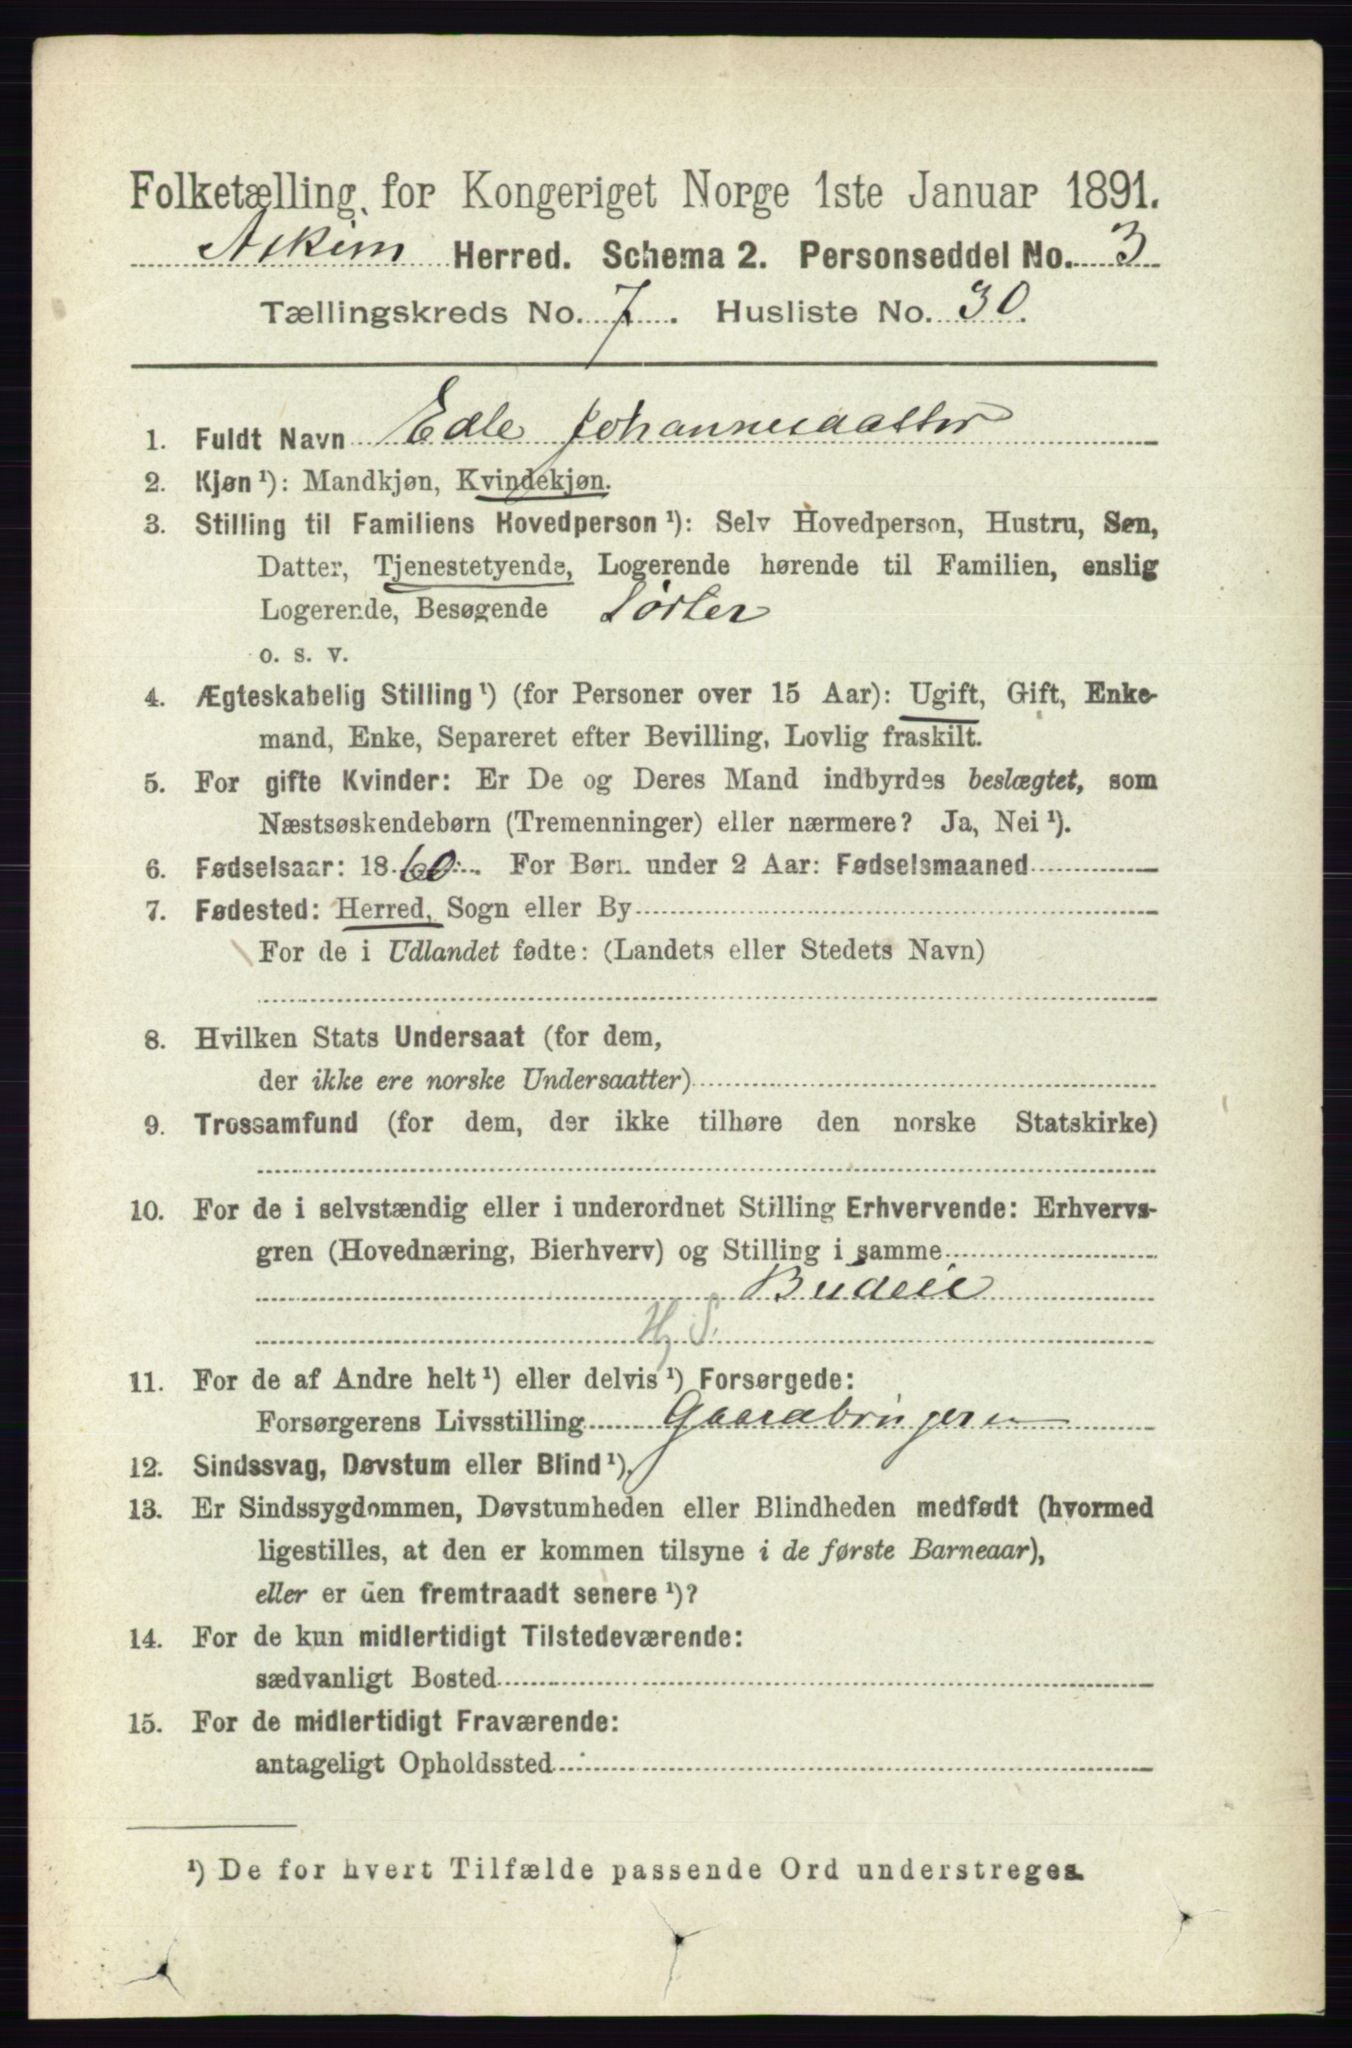 Folketælling for Kongeriget Norge 1ste Januar 1891.
Askim Herred. Schema 2. Personseddel No. 3
Tællingskreds No. 7. Husliste No. 30.
1. Fuldt Navn Edle Johannesdatter
2. Kjøn ¹): Mandkjøn, Kvindekjøn.
3. Stilling til Familiens Hovedperson ¹): Selv Hovedperson, Hustru, Søn,
Datter, Tjenestetyende, Logerende hørende til Familien, enslig
Logerende, Besøgende Søster
o. s. v.
4. Ægteskabelig Stilling ¹) (for Personer over 15 Aar): Ugift, Gift, Enke-
mand, Enke, Separeret efter Bevilling, Lovlig fraskilt.
5. For gifte Kvinder: Er De og Deres Mand indbyrdes beslægtet, som
Næstsøskendebørn (Tremenninger) eller nærmere? Ja, Nei ¹).
6. Fødselsaar: 1860. For Børn under 2 Aar: Fødselsmaaned
7. Fødested: Herred, Sogn eller By
For de i Udlandet fødte: (Landets eller Stedets Navn)
8. Hvilken Stats Undersaat (for dem,
der ikke ere norske Undersaatter)
9. Trossamfund (for dem, der ikke tilhøre den norske Statskirke)
10. For de i selvstændig eller i underordnet Stilling Erhvervende: Erhvervs-
gren (Hovednæring, Bierhverv) og Stilling i samme
Budeie
H, S.
11. For de af Andre helt ¹) eller delvis ¹) Forsørgede:
Forsørgerens Livsstilling Gaardbrugeren
12. Sindssvag, Døvstum eller Blind ¹).
13. Er Sindssygdommen, Døvstumheden eller Blindheden medfødt (hvormed
ligestilles, at den er kommen tilsyne i de første Barneaar),
eller er den fremtraadt senere ¹)?
14. For de kun midlertidigt Tilstedeværende:
sædvanligt Bosted
15. For de midlertidigt Fraværende:
antageligt Opholdssted
¹) De for hvert Tilfælde passende Ord understreges.